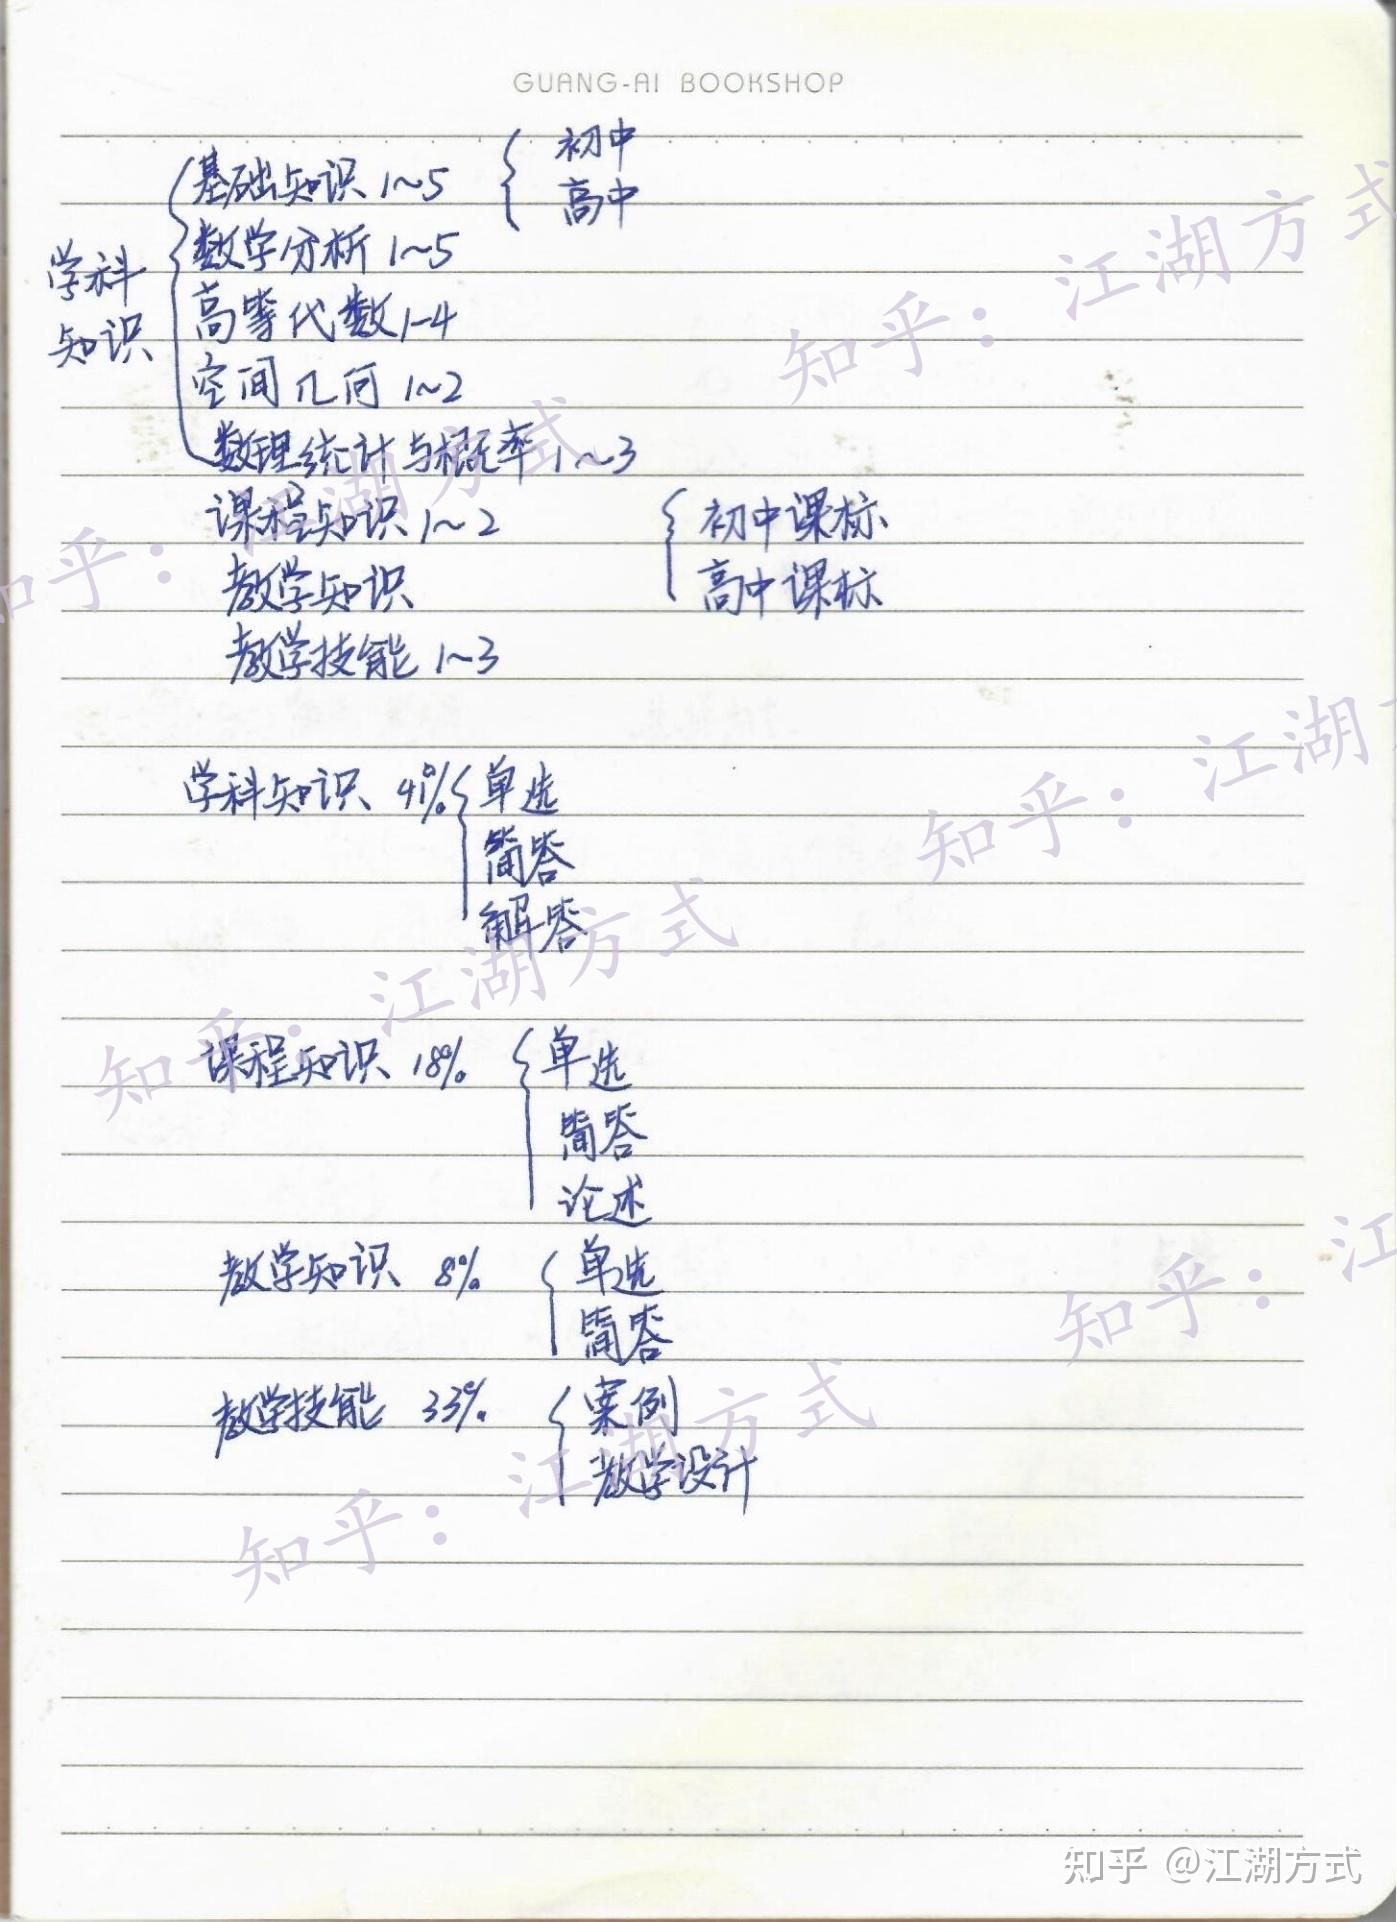 GUANG-AI BOOKSHOP
学科
知识
基础知识 1~5
初中
高中
数学分析 1~5
高等代数 1-4
空间几何 1~2
数理统计与概率 1~3
课程知识 1~2
初中课标
高中课标
教学知识
教学技能 1~3
学科知识 41%
单选
简答
解答
课程知识 18%
单选
简答
论述
教学知识 8%
单选
简答
教学技能 33%
案例
教学设计
知乎：江湖方式
知乎：江湖方式
知乎：江湖方式
知乎：江湖
知乎：江
知乎：江湖方式
知乎 @江湖方式